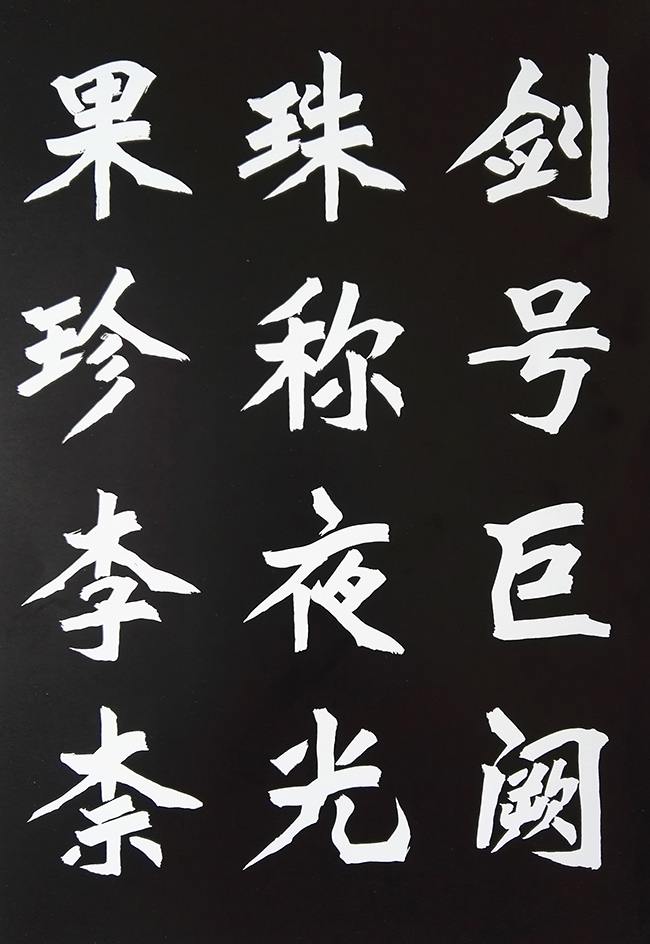 剑号巨阙
珠称夜光
果珍李柰